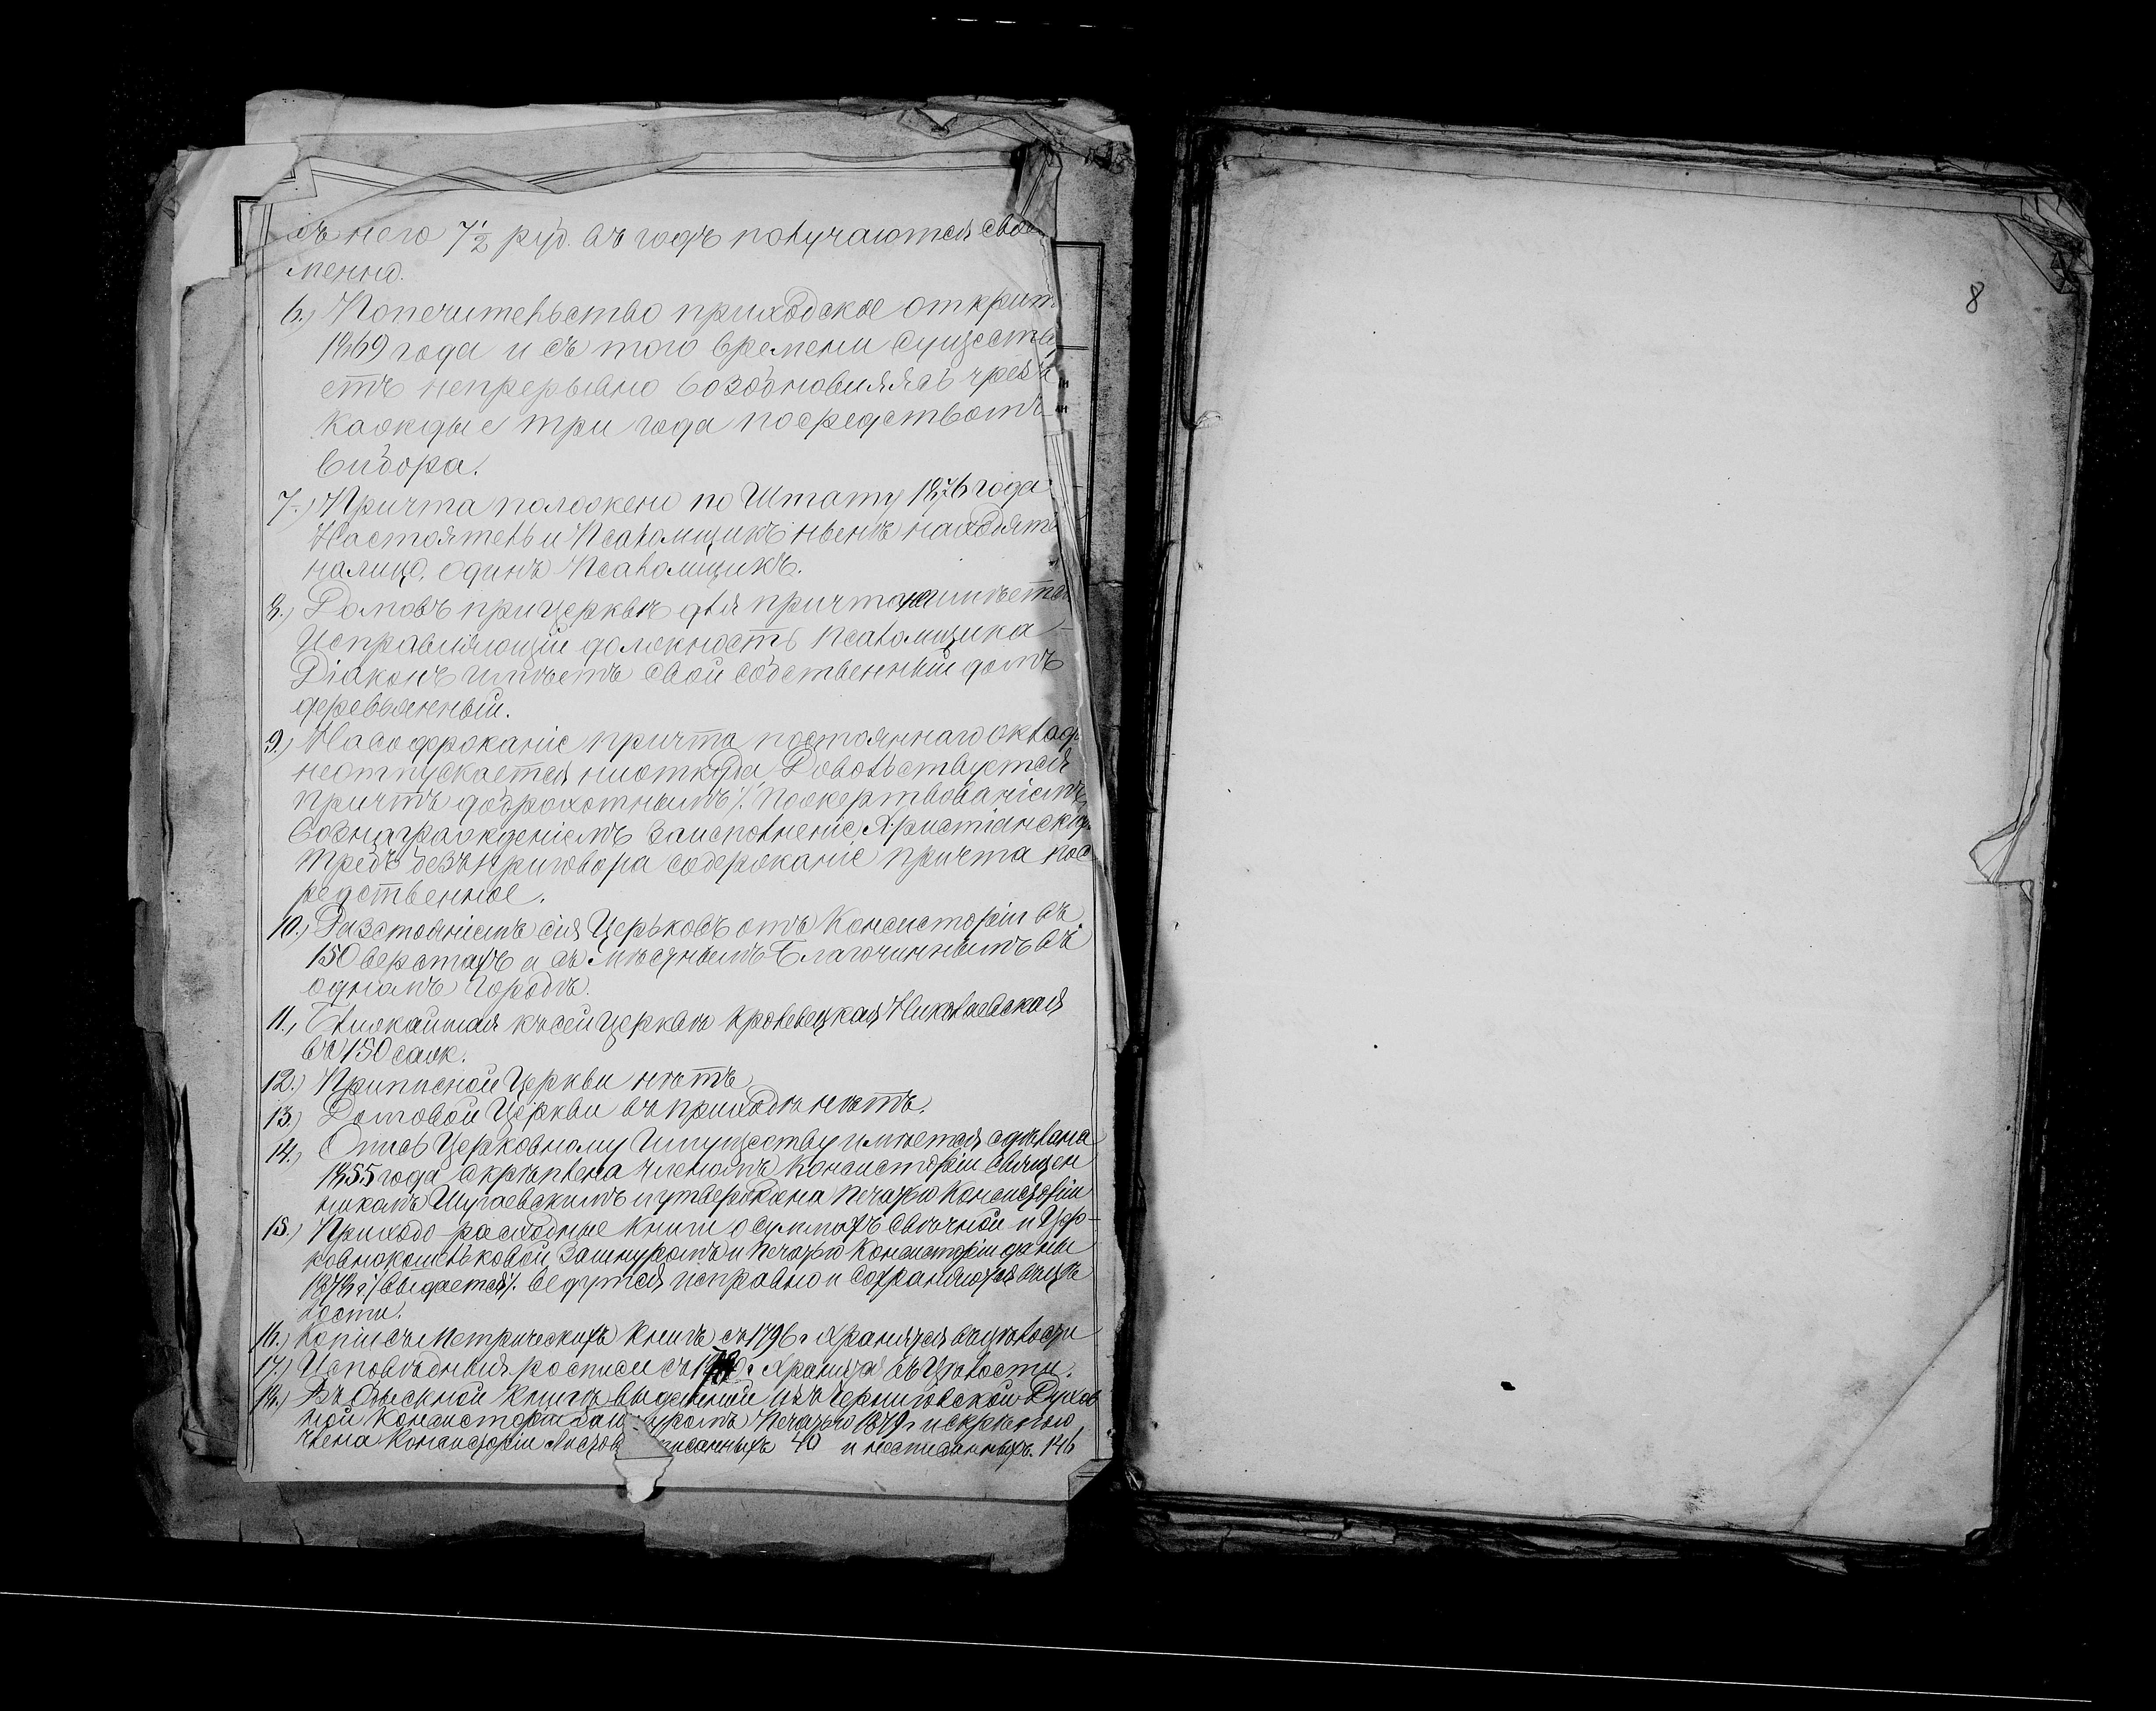 съ него 7½ руб. въ годъ получаются свое
менно.
6.) Попечительство приходское открит.
1869 года и съ того времени существу
етъ непрерывно возобновиляясь чрезъ
каждые три года посредствомъ
выбора.
7.) Причта положено по Штату 1876 года
Настоятель и Псаломщикъ ныенѣ находят
налицо, одинъ Псаломщикъ.
8.) Домовъ при церквѣ для причта неимѣется
Исправляющій должность псаломщика
Діаконъ имѣетъ свой собственный домъ
деревьянный.
9.) Насодержаніе причта постояннаго оклада
неотпускается ниоткуда, Довольствуется
причтъ доброхотнымъ /. пожертвованіемъ,
вознагражденіемъ заисполненіе Христіанских
требъ безъ приговора содержаніе причта пос-
редственное.
10.) Разстояніемъ сія Церьковъ отъ Консисторіи въ
150 верстахъ и съ Мѣстнымъ Благочиннымъ въ
одномъ городѣ.
11., Ближайшая къ сей церквѣ Кролевецкая Николаевская
въ 150 саж.
12.) Приписной Церкви нѣтъ
13.) Домовой Церкви въ приходѣ нѣтъ.
14., Опись Церковному Имуществу имѣется сдѣлана
1855 года скрѣплена членомъ Консисторіи Священ
никомъ Шугаевскимъ и утверждена печатю Консисторіи
15.) Приходо-расходные книги о суммахъ свѣчной и Цер-
ковнокошельковой зашнуромъ и печатю Консисторіи даны
1876 г./ выдается/. ведутся исправно и сохраняются въ цѣ
лости.
16.) Копіи съ Метрическихъ книгъ съ 1796 г хранятся въ цѣлости
17.) Исповѣдныя росписи съ г хранятся въ цѣлости.
18.) Въ обыскной книгѣ выданной изъ Черниговской Духов
ной Консисторіи зашнуромъ печатю 1879 г и скрѣпою
члена Консисторіи листовъ писанныхъ 40 и неписанныхъ. 146
8